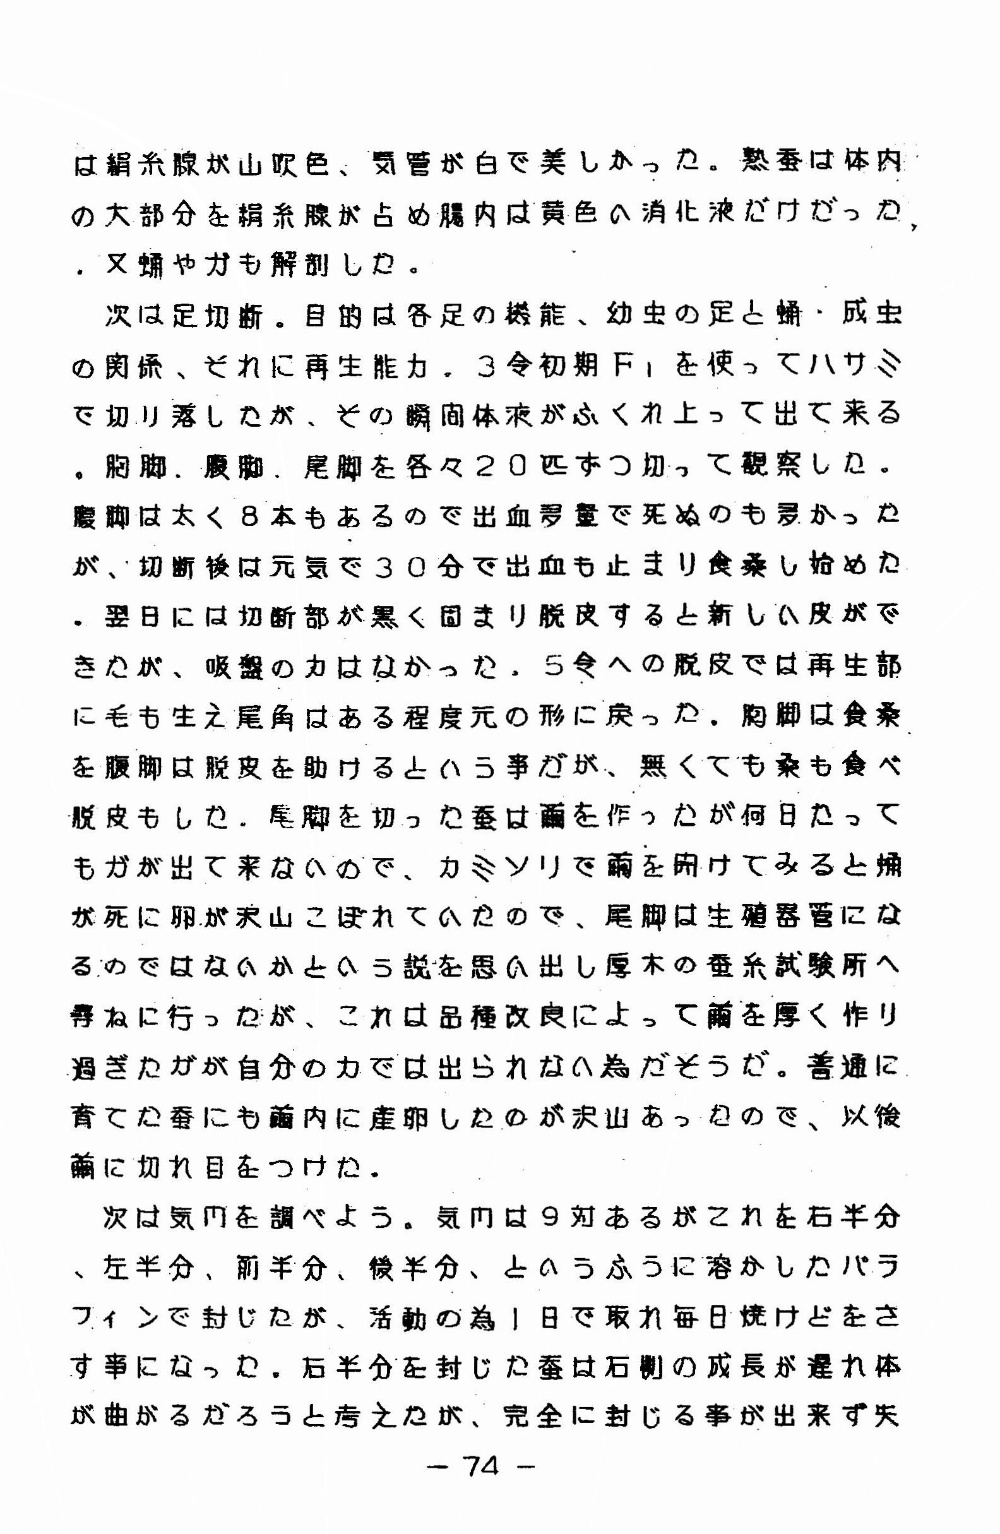 は絹糸腺が山吹色、気管が白で美しかった。熟蚕は体内
の大部分を絹糸腺が占め腸内は黄色い消化液だけだった
．又蛹やガも解剖した。
次は足切断。目的は各足の機能、幼虫の足と蛹・成虫
の関係、それに再生能力．３令初期Ｆ₁を使ってハサミ
で切り落したが、その瞬間体液がふくれ上って出て来る
。胸脚．腹脚．尾脚を各々２０匹ずつ切って観察した．
腹脚は太く８本もあるので出血多量で死ぬのも多かった
が、切断後は元気で３０分で出血も止まり食桑し始めた
．翌日には切断部が黒く固まり脱皮すると新しい皮がで
きたが、吸盤の力はなかった．５令への脱皮では再生部
に毛も生え尾角はある程度元の形に戻った．胸脚は食桑
を腹脚は脱皮を助けるという事だが、無くても桑も食べ
脱皮もした．尾脚を切った蚕は繭を作ったが何日たって
もガが出て来ないので、カミソリで繭を開けてみると蛹
が死に卵が沢山こぼれていたので、尾脚は生殖器管にな
るのではないかという説を思い出し厚木の蚕糸試験所へ
尋ねに行ったが、これは品種改良によって繭を厚く作り
過ぎたガが自分の力では出られない為だそうだ。普通に
育てた蚕にも繭内に産卵したのが沢山あったので、以後
繭に切れ目をつけた．
次は気門を調べよう。気門は９対あるがこれを右半分
、左半分、前半分、後半分、というふうに溶かしたパラ
フィンで封じたが、活動の為１日で取れ毎日焼けどをさ
す事になった．右半分を封じた蚕は右側の成長が遅れ体
が曲がるだろうと考えたが、完全に封じる事が出来ず失
－ 74 －